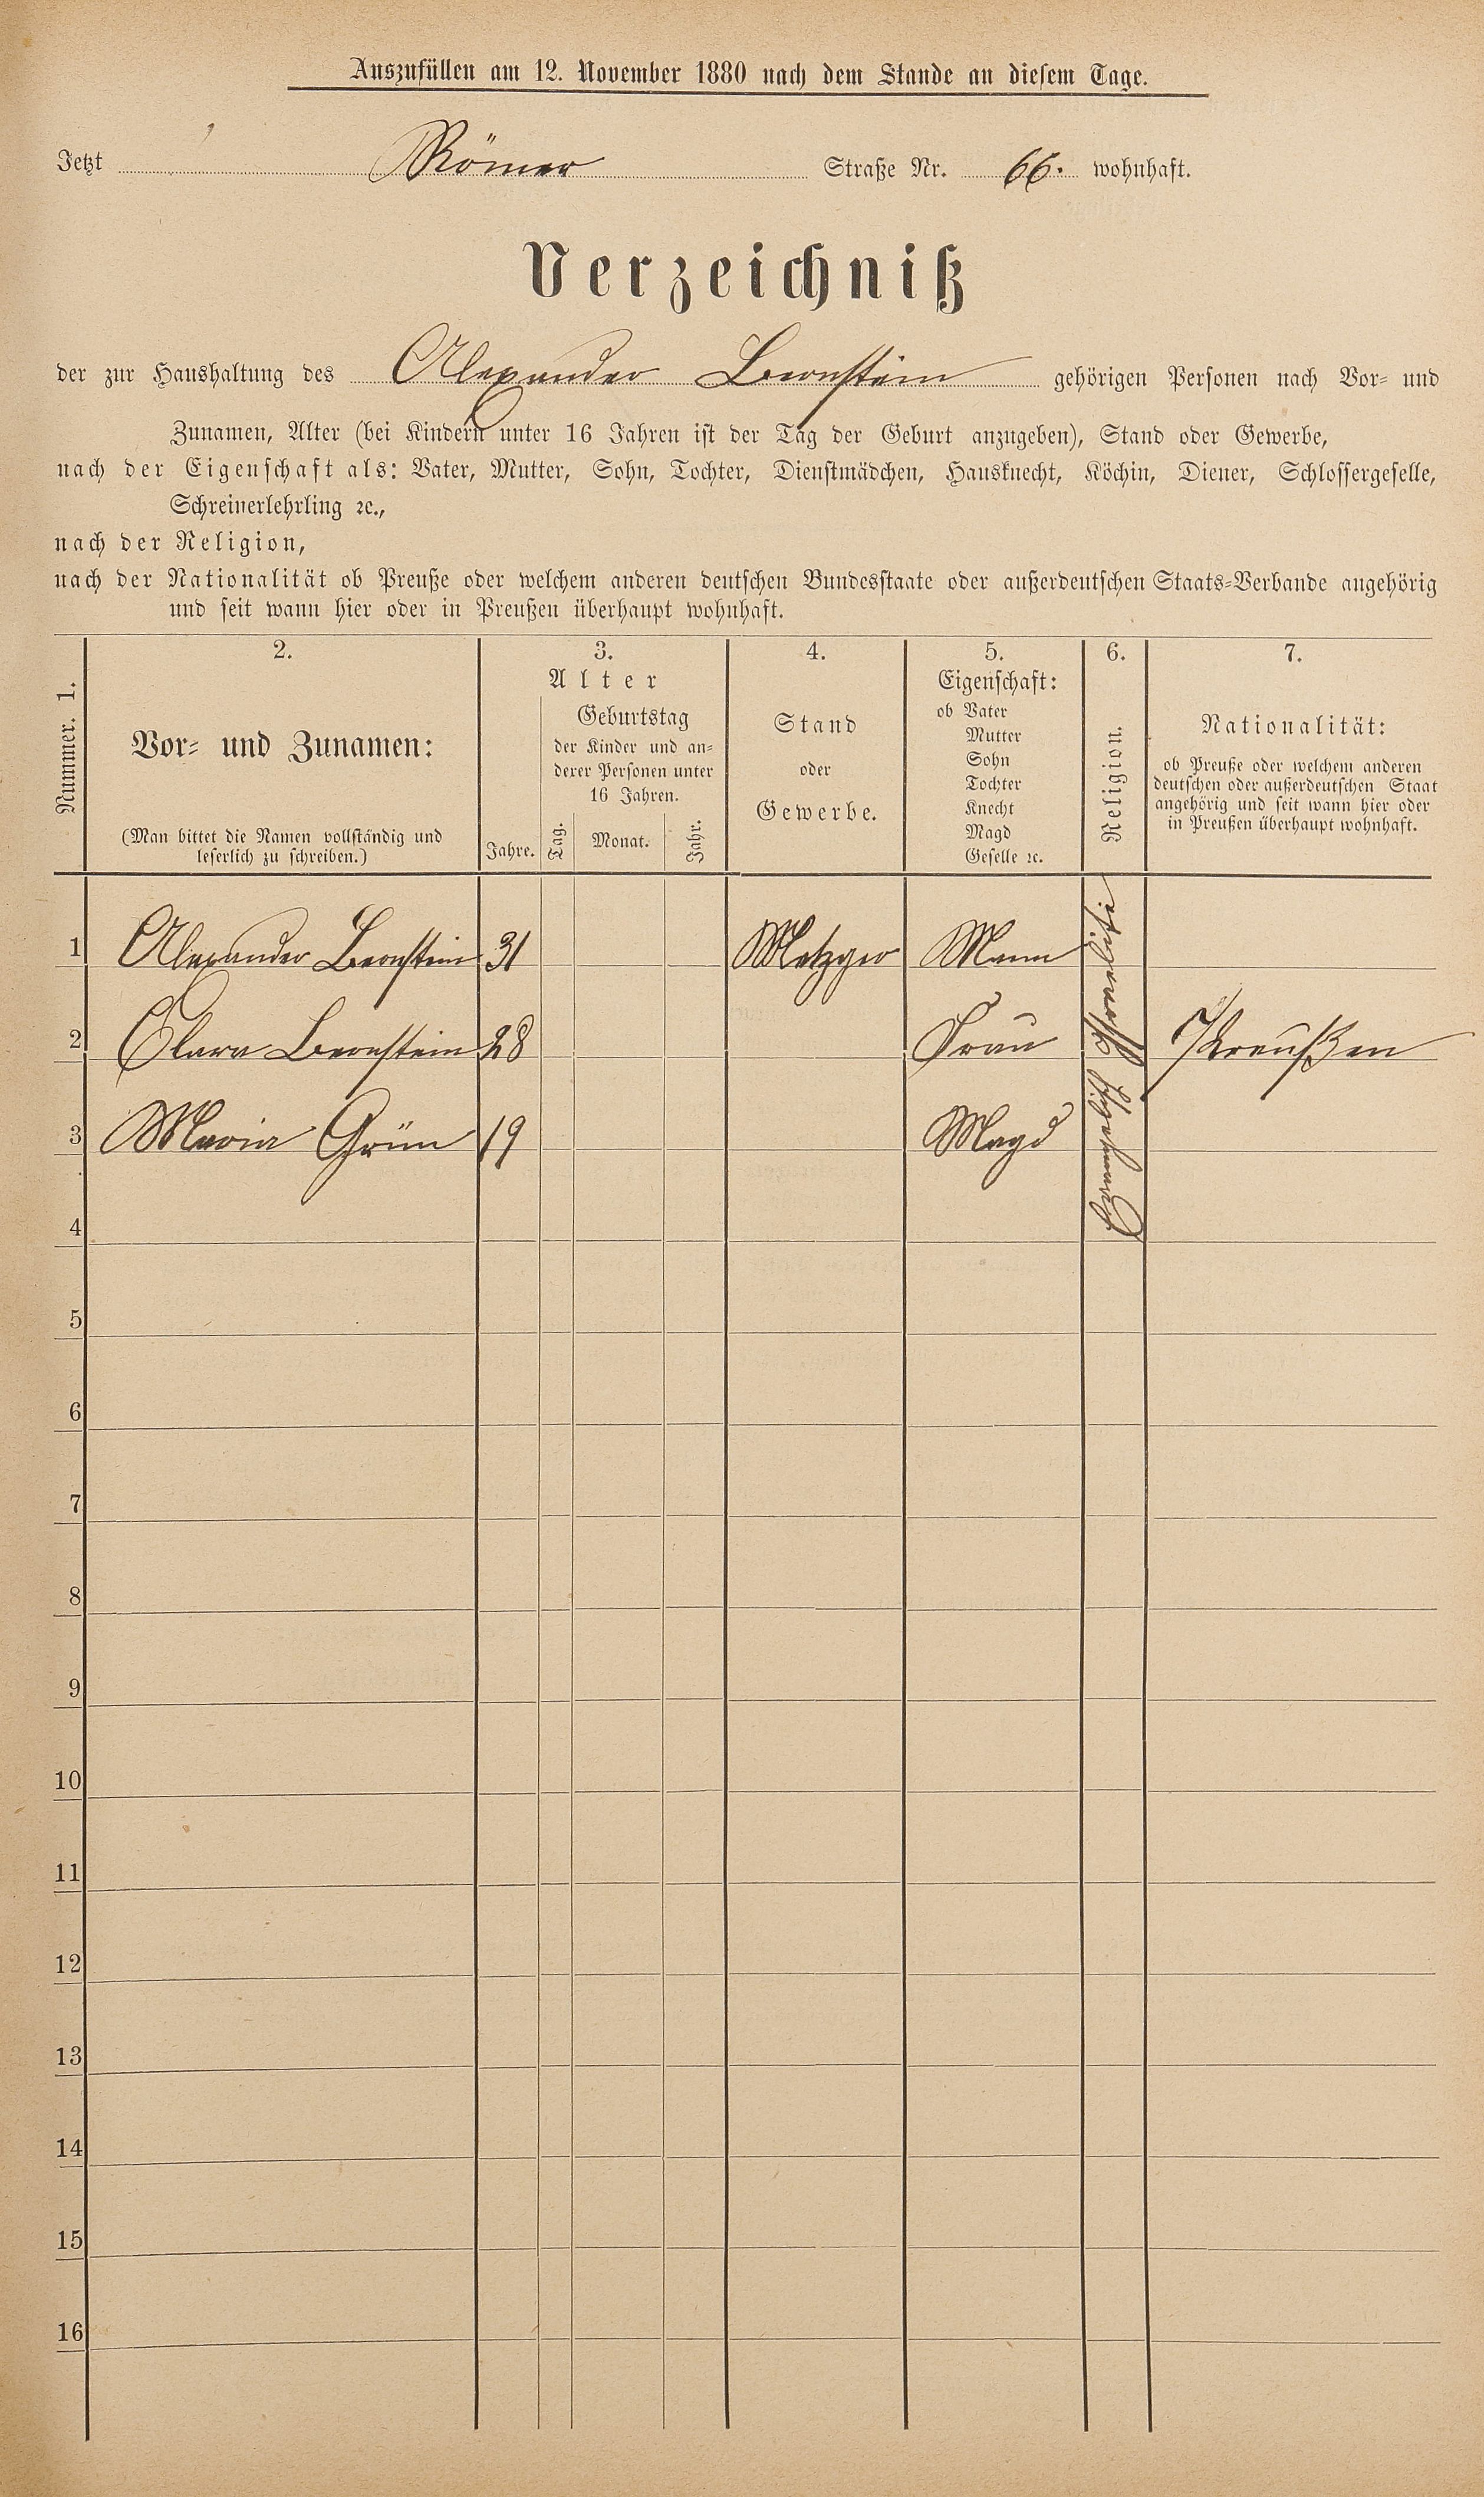 Auszufüllen am 12. November 1880 nach dem Stande an diesem Tage.
Jetzt Römer Straße Nr. 66. wohnhaft.
Verzeichniß
der zur Haushaltung des Alexander Bernstein gehörigen Personen nach Vor- und
Zunamen, Alter (bei Kindern unter 16 Jahren ist der Tag der Geburt anzugeben), Stand oder Gewerbe,
nach der Eigenschaft als: Vater, Mutter, Sohn, Tochter, Dienstmädchen, Hausknecht, Köchin, Diener, Schlossergeselle,
Schreinerlehrling ꝛc.,
nach der Religion,
nach der Nationalität ob Preuße oder welchem anderen deutschen Bundesstaate oder außerdeutschen Staats-Verbande angehörig
und seit wann hier oder in Preußen überhaupt wohnhaft.
Nummer. 1.
2.
Vor- und Zunamen:
(Man bittet die Namen vollständig und
leserlich zu schreiben.)
3.
Alter
Jahre.
Geburtstag
der Kinder und an-
derer Personen unter
16 Jahren.
Tag. Monat. Jahr.
4.
Stand
oder
Gewerbe.
5.
Eigenschaft:
ob Vater
Mutter
Sohn
Tochter
Knecht
Magd
Geselle ꝛc.
6.
Religion.
7.
Nationalität:
ob Preuße oder welchem anderen
deutschen oder außerdeutschen Staat
angehörig und seit wann hier oder
in Preußen überhaupt wohnhaft.
1 Alexander Bernstein 31 Metzger Mann
2 Clara Bernstein 28 Frau Preußen
3 Maria Grün 19 Magd
4
5
6
7
8
9
10
11
12
13
14
15
16